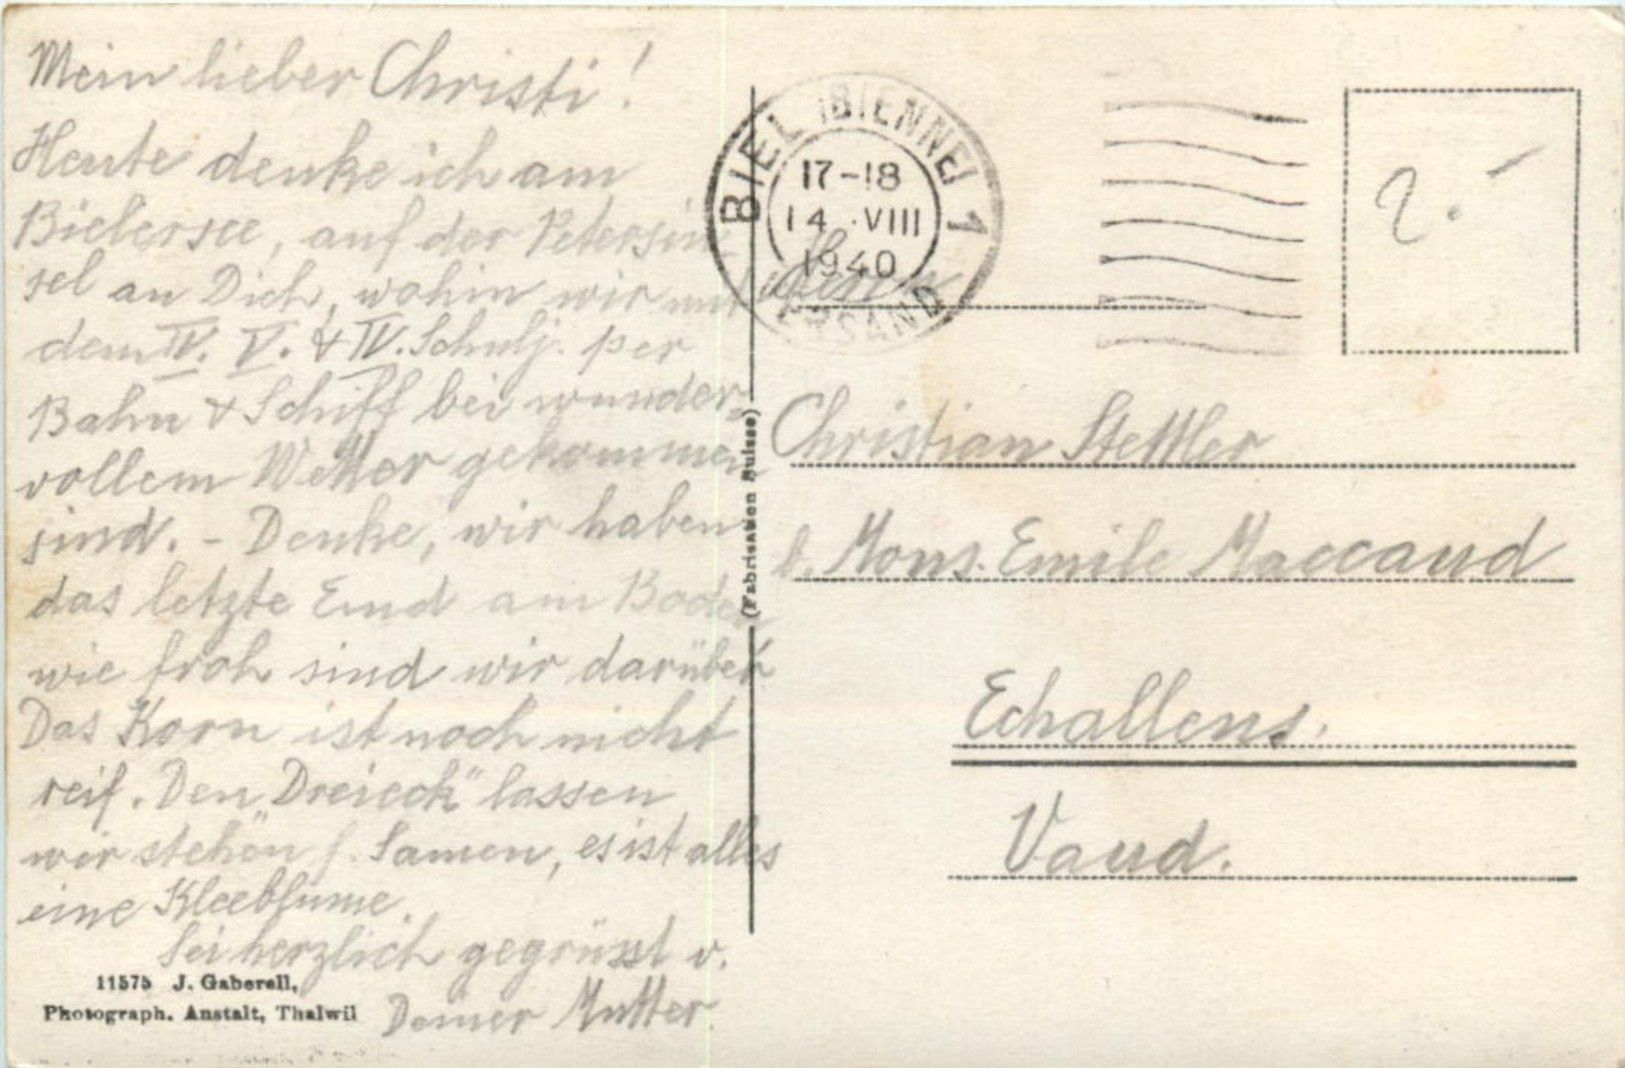 Mein lieber Christi!
Heute denke ich am
Bielersee, auf der Petersin
sel an Dich, wohin wir mit
dem IV. V. & IV. Schulj. per
Bahn & Schiff bei wunder-
vollem Wetter gekommen
sind. - Denke, wir haben
das letzte Emd am Boden
wie froh sind wir darüber.
Das Korn ist noch nicht
reif. Den "Dreieck" lassen
wir stehen f. Samen, es ist alles
eine Kleeblume.
Sei herzlich gegrüsst v.
Deiner Mutter.
11575 J. Gaberell,
Photograph. Anstalt, Thalwil
(Fabrication Suisse)
BIEL (BIENNE) 1
17-18
14.VIII
1940
VERSAND
Herrn
Christian Stettler
b. Mons. Emile Maccaud
Echallens.
Vaud.